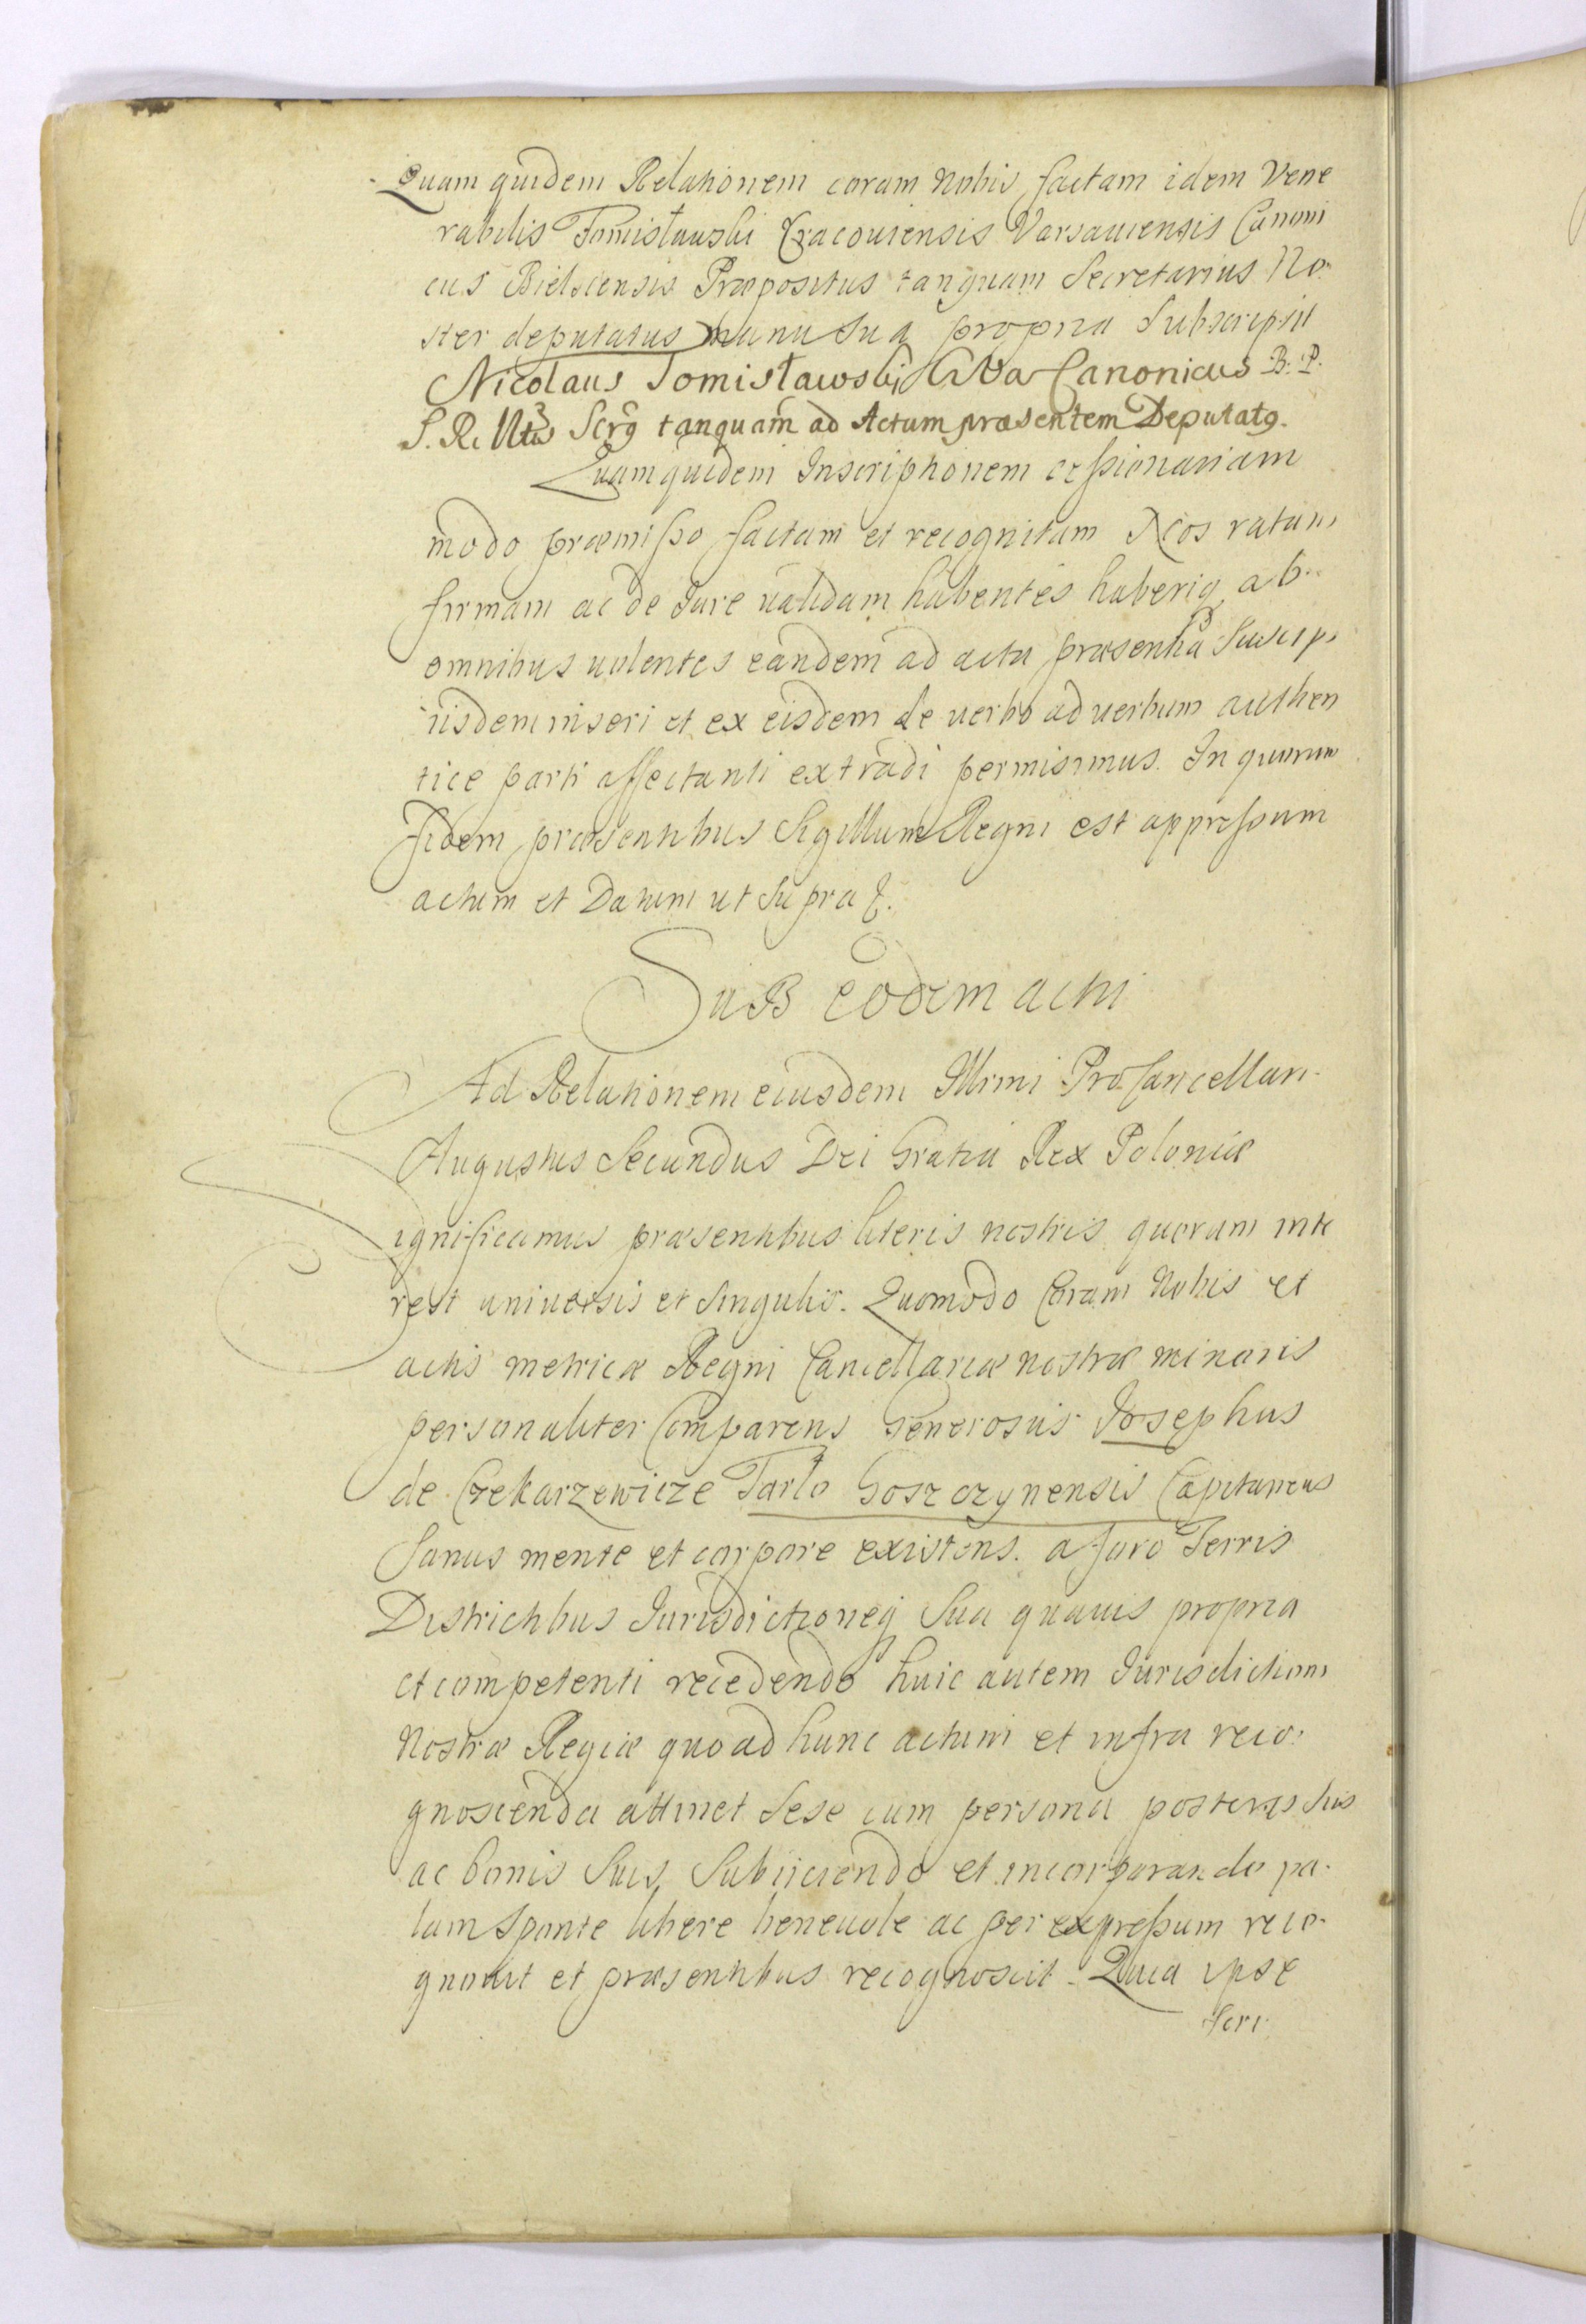 Quam quidem Relationem coram Nobis factam idem Vene
rabilis Tomisławski Cracouiensis Varsauiensis Canoni
cus Bielscensis Præpositus tanquam Secretarius No
ster deputatus manu sua propria subscripsit
Nicolaus Tomisławski Canonicus B. P.
S. R. Mtis Scrg tanquam ad Actum præsentem Deputatg.
Quam quidem Inscriptionem cessionariam
modo præmisso factam et recognitam Nos ratam
firmam ac de Jure validam habentes haberiq ab
omnibus uolentes eandem ad acta præsentia suscipi
iisdem inseri et ex eisdem de uerbo ad uerbum authen
tice parti affectanti extradi permisimus. In quorum
fidem præsentibus Sigillum Regni est appressum
actum et Datum ut supra
Sub eodem actu
Ad Relationem eiusdem Illrmi Procancellari
Augustus Secundus Dei Gratia Rex Poloniæ
Significamus præsentibus literis nostris quorum inte
rest uniuersis et singulis. Quomodo Coram Nobis et
actis metricæ Regni Cancellariæ nostræ minoris
personaliter Comparens Generosus Josephus
de Czekarzewicze Tarło Goszczynensis Capitaneus
Sanus mente et corpore existens. a foro Terris
Districtibus Jurisdictioneq sua quauis propria
et competenti recedendo huic autem Jurisdictioni
Nostræ Regiæ quo ad hunc actum et infra reco
gnoscenda attinet sese cum persona posteris suis
ac bonis suis subiiciendo et incorporando pa
lam sponte libere beneuole ac per expressum reco
gnouit et præsentibus recognoscit. Quia ipse